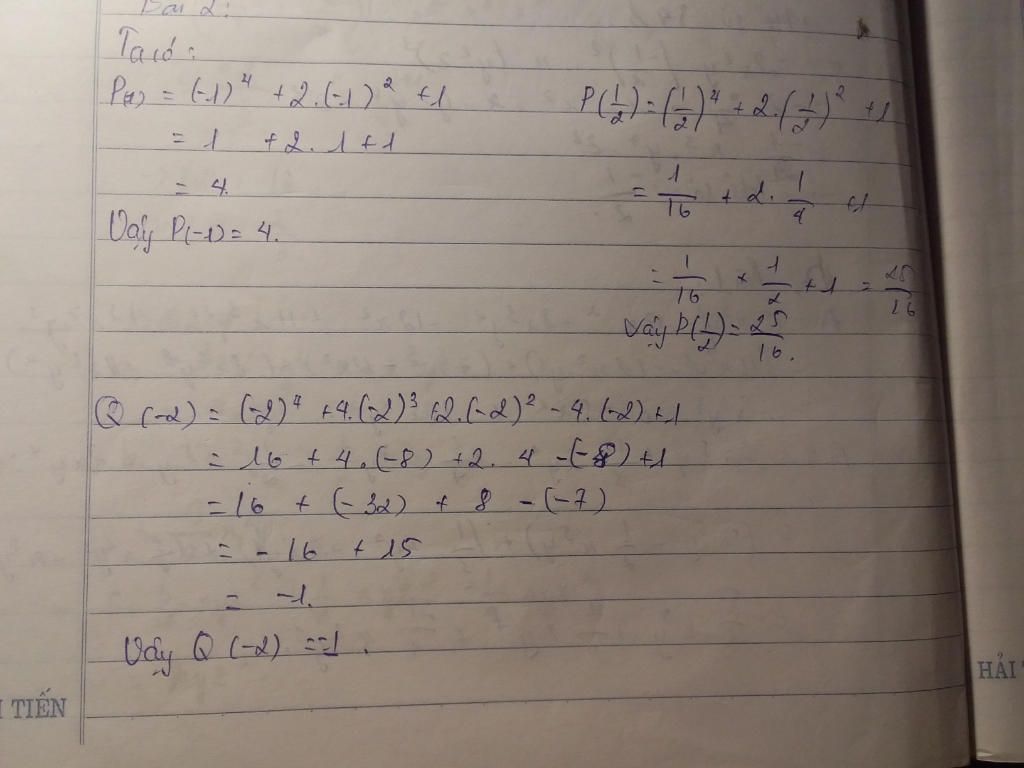 Bài 2:
Ta có:
P(-1) = (-1)^4 + 2.(-1)^2 + 1
= 1 + 2. 1 + 1
= 4.
Vậy P(-1) = 4.
P(1/2) = (1/2)^4 + 2.(1/2)^2 + 1
= 1/16 + 2. 1/4 +1
= 1/16 + 1/2 + 1 = 25/16
Vậy P(1/2) = 25/16.
Q (-2) = (-2)^4 + 4.(-2)^3 + 2.(-2)^2 - 4.(-2) + 1
= 16 + 4.(-8) + 2. 4 - (-8) + 1
= 16 + (-32) + 8 - (-7)
= - 16 + 15
= -1.
Vậy Q (-2) = -1.
TIẾN
HẢI